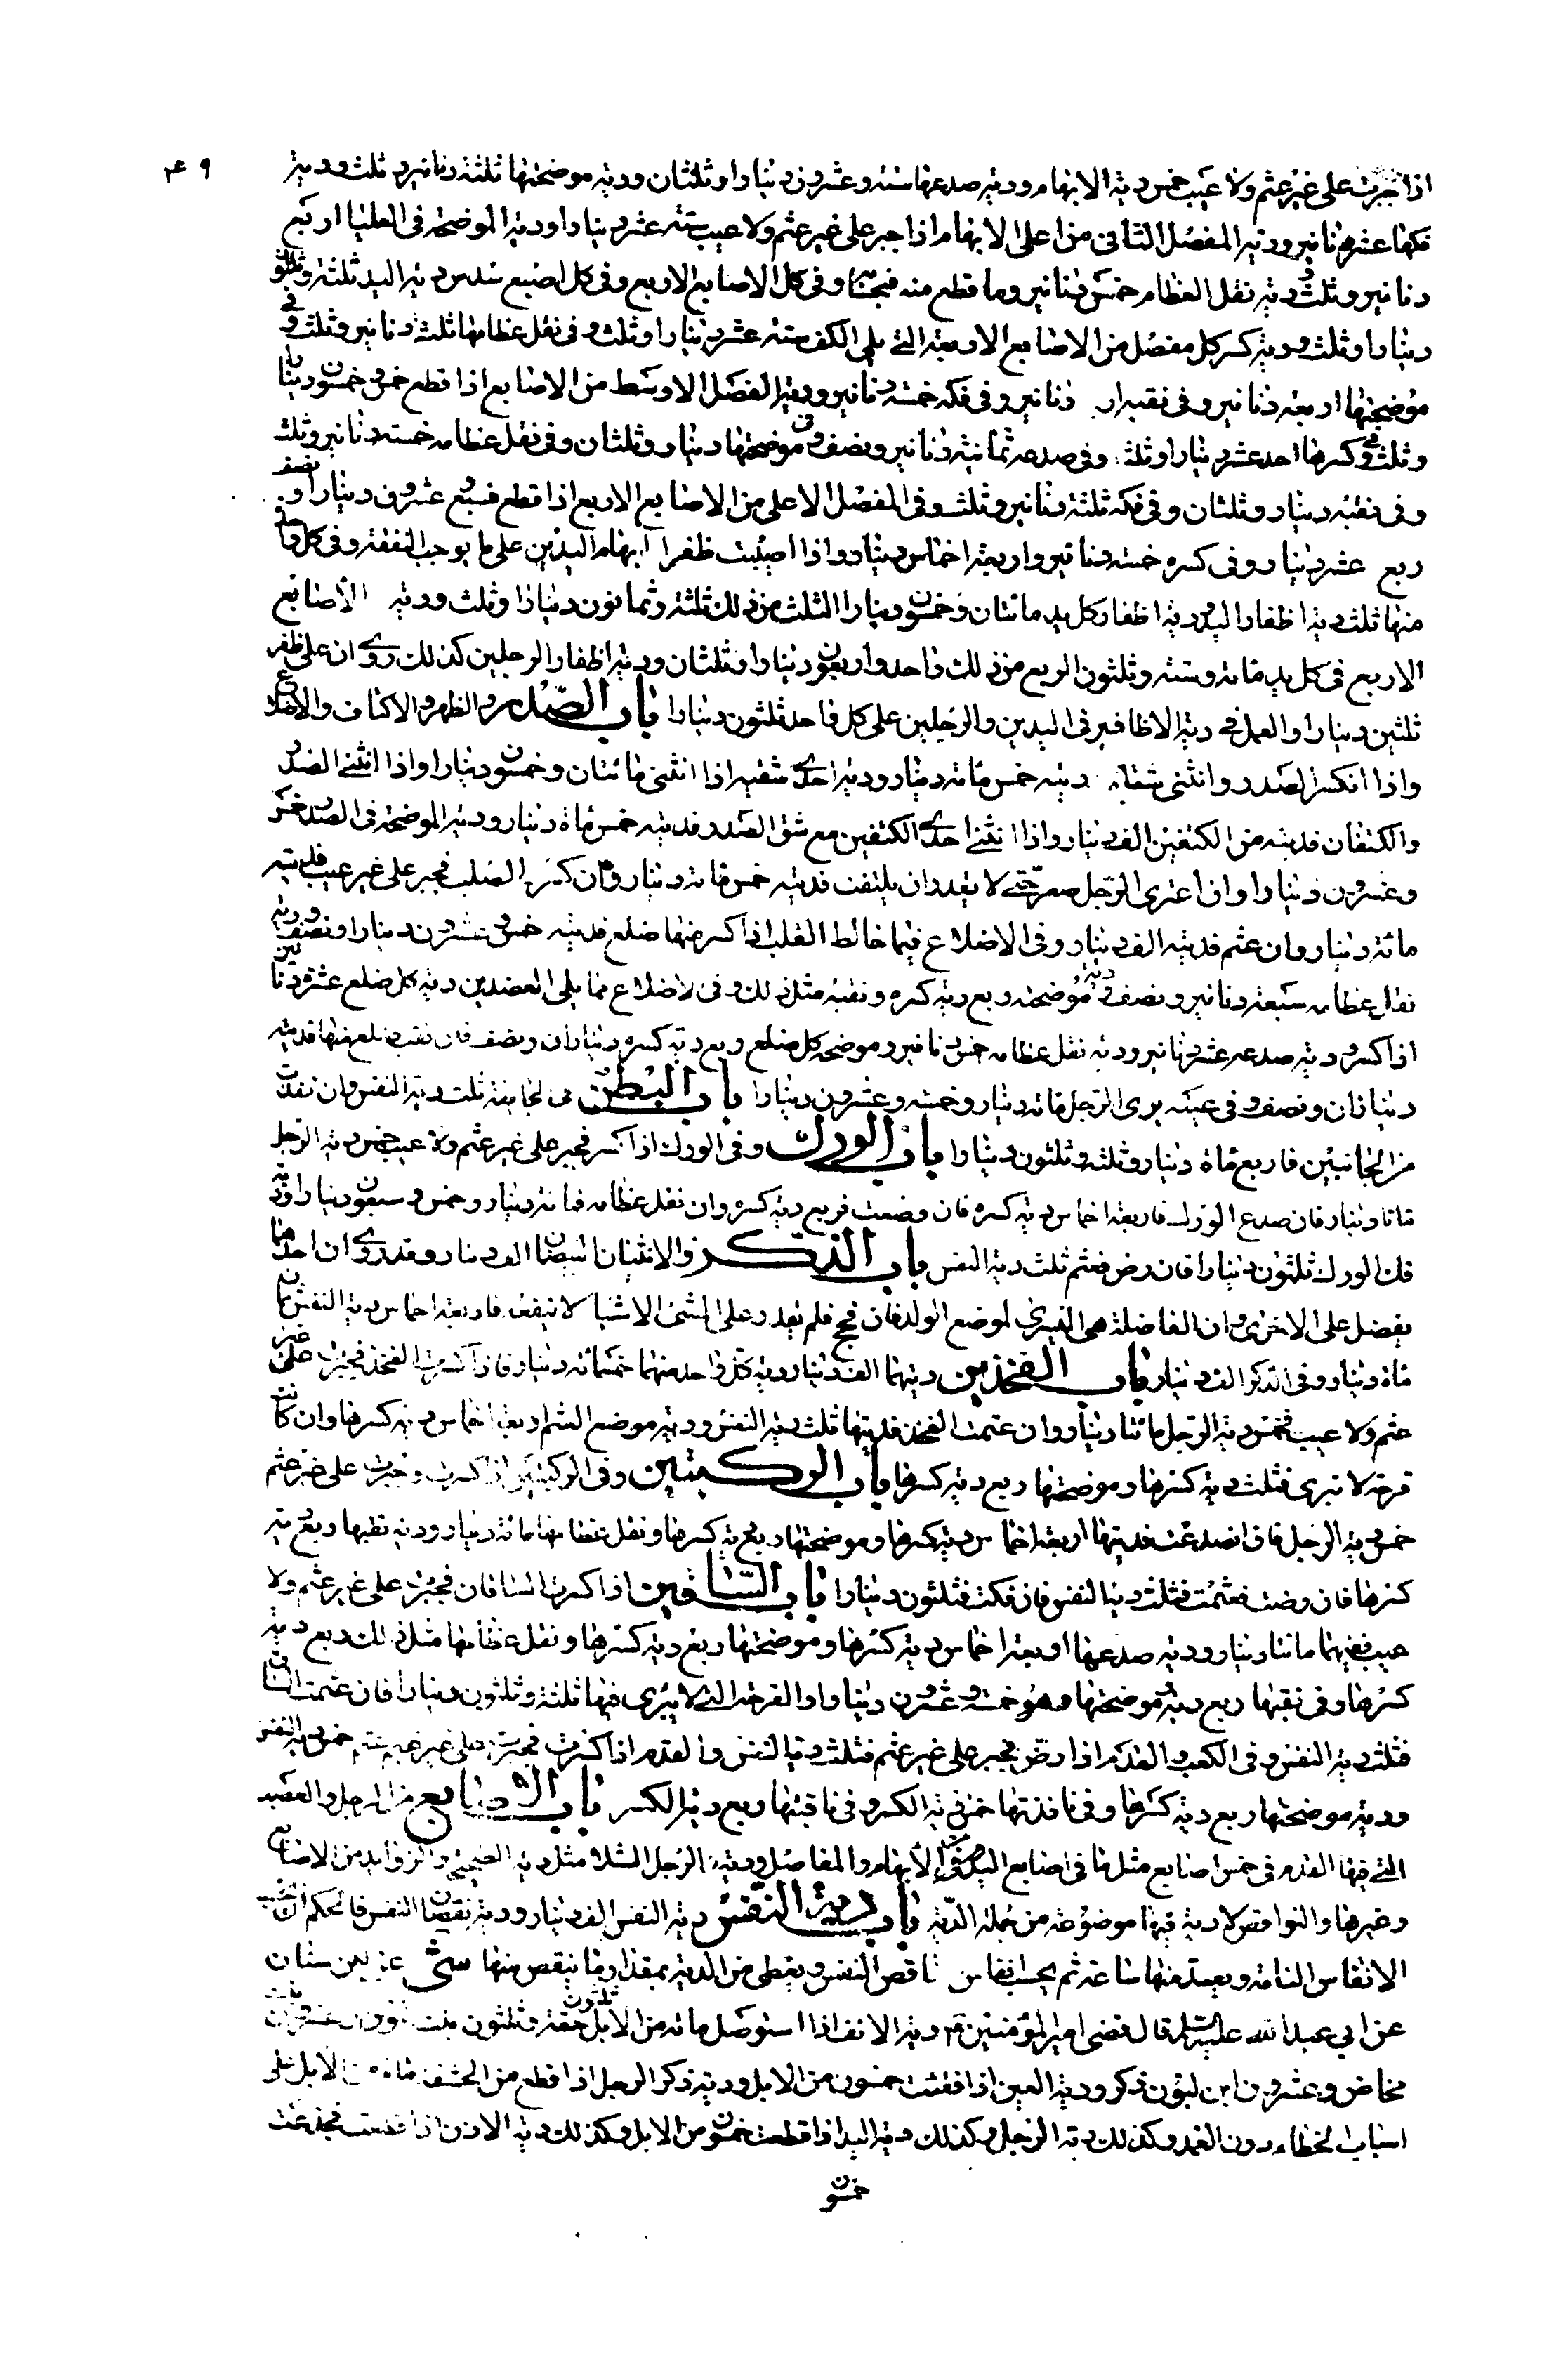 ۴۹
اذا جبرت على غير عثم ولا عيب خمس دية الابهام ودية صدعها ستة وعشرون دينارا وثلثان ودية موضحتها ثلثة دنانير وثلث ودية
فكها عشرة دنانير ودية المفصل الثانى من اعلى الابهام اذا جبر على غير عثم ولا عيب ستة عشر دينارا ودية الموضحة فى العليا اربع
دنانير وثلث ودية نقل العظام خمس دنانير وما قطع منه فبحسابه وفى كل الاصابع الاربع وفى كل اصبع سدس دية اليد ثلثة وثمانون
دينارا وثلث ودية كسر كل مفصل من الاصابع الاربعة التى يلى الكف ستة عشر دينارا وثلث وفى نقل عظامها ثلثة دنانير وثلث وفى
موضحتها اربعة دنانير وفى نقبه دنانير وفى فكه خمسة دنانير ودية المفصل الاوسط من الاصابع اذا قطع خمس وخمسون دينارا
وثلث وفى كسرها احد عشر دينارا وثلث وفى صدعه ثمانية دنانير ونصف وفى موضحتها دينار وثلثان وفى نقل عظامه خمسة دنانير وثلث
وفى نقبه دينار وثلثان وفى فكه ثلثة دنانير وثلث وفى المفصل الاعلى من الاصابع الاربع اذا قطع فسبع وعشرون دينارا ونصف
ربع عشر دينار وفى كسره خمسة دنانير واربعة اخماس دينار واذا اصيبت ظفرا ابهام اليدين على ما يوجب النفقة وفى كل واحد
منها ثلث دية اظفار اليد ودية اظفار كل يد مائتان وخمسون دينارا الثلث من ذلك ثلثة وثمانون دينارا وثلث ودية الاصابع
الاربع فى كل يد مائة وستة وثلثون الربع من ذلك واحد واربعون دينارا وثلثان ودية اظفار الرجلين كذلك روى ان على ظفر
ثلثين دينارا والعمل فى دية الاظافير فى اليدين والرجلين على كل واحد ثلثون دينارا باب الصدر والظهر والاكتاف والاضلاع
واذا انكسر الصدر وانثنى شقاه ديته خمس مائة دينار ودية احدى شقيه اذا انثنى مائتان وخمسون دينارا واذا انثنى الصدر
والكتفان فديته من الكتفين الف دينار واذا انثنى احدى الكتفين مع شق الصدر فديته خمس مائة دينار ودية الموضحة فى الصدر خمس
وعشرون دينارا وان اعترى الرجل صعر حتى لا يقدر ان يلتفت فديته خمس مائة دينار وان كسر الصلب فجبر على غير عيب فديته
مائة دينار وان عثم فديته الف دينار وفى الاضلاع فيما خالط القلب اذا كسر منها ضلع فديته خمس وعشرون دينارا ونصف ودية
نقل عظامه سبعة دنانير ونصف ودية موضحته ربع دية كسره ونقبه مثل ذلك وفى الاضلاع مما يلى العضدين دية كل ضلع عشرة دنانير
اذا كسر ودية صدعه عشر دنانير ودية نقل عظامه خمس دنانير وموضحة كل ضلع ربع دية كسره ديناران ونصف فان نقب ضلع منها فديته
ديناران ونصف وفى عيبه يرى الرجل مائة دينار وخمسة وعشرون دينارا باب البطن فى الجايفة ثلث دية النفس وان نفذت
من الجانبين فاربع مائة دينار وثلثة وثلثون دينارا باب الورك وفى الورك اذا كسر فجبر على غير عثم ولا عيب خمس دية الرجل
مائتا دينار فان صدع الورك فاربعة اخماس دية كسره فان وضحت فربع دية كسره وان نقل عظامه فمائة دينار وخمس وسبعون دينارا ودية
فك الورك ثلثون دينارا فان رض فعثم ثلث دية النفس باب الذكر والانثيان البيضتان الف دينار وقد روى ان احدهما
يفضل على الاخرى وان الفاضلة هى اليسرى لموضع الولد فان فحج فلم يقدر على المشى الا مشيا لا ينفعه فاربعة اخماس دية النفس ثمان
مائة دينار وفى الذكر الف دينار باب الفخذين ديتهما الف دينار دية كل واحد منهما خمسمائة دينار فاذا كسرت الفخذ فجبرت على غير
عثم ولا عيب فخمس دية الرجل مائتا دينار وان عثمت الفخذ فديتها ثلث دية النفس ودية موضع العثم اربعة اخماس دية كسرها وان كانت
قرحة لا تبرى فثلث دية كسرها وموضحتها ربع دية كسرها باب الركبتين وفى الركبتين اذا كسرت وجبرت على غير عثم
خمس دية الرجل فان انصدعت فديتها اربعة اخماس دية كسرها وموضحتها ربع دية كسرها ونقل عظامها مائة دينار ودية نقبها ربع دية
كسرها فان رضت فعثمت فثلث دية النفس فان فكت فثلثون دينارا باب الساقين اذا كسرت الساقان فجبرت على غير عثم ولا
عيب ففيهما مائتا دينار ودية صدعها اربعة اخماس دية كسرها وموضحتها ربع دية كسرها ونقل عظامها مثل ذلك ربع دية
كسرها وفى نقبها ربع دية موضحتها وهو خمسة وعشرون دينارا والقرحة التى لا تبرى فيها ثلثة وثلثون دينارا فان عثمت الساق
فثلث دية النفس وفى الكعب والقدم اذا رض فجبر على غير عثم فثلث دية النفس والقدم اذا كسرت فجبرت على غير عثم خمس دية النفس
ودية موضحتها ربع دية كسرها وفى نافذتها خمس دية الكسر وفى ناقبتها ربع دية الكسر باب الاصابع من الرجل والعصب
التى فيها القدم فى خمس اصابع مثل ما فى اصابع اليد من الابهام والمفاصل ودية الرجل الشلا مثل دية الصحيحة والزوايد من الاصابع
وغيرها والنواقص لا دية فيها موضوعة من جملة الدية باب دية النفس دية النفس الف دينار ودية نقصان النفس فالحكم ان تحسب
الانفاس التامة ويعد منها ساعة ثم يحسب انفاس ناقص النفس ويعطى من الدية بمقدار ما ينقص منها سئى عن ابن سنان
عن ابي عبد الله عليه السلم قال قضى امير المؤمنين ع دية الانف اذا استوصل مائة من الابل ثلثون حقة وثلثون بنت لبون وعشرون بنت
مخاض وعشرون ابن لبون ذكر ودية العين اذا فقئت خمسون من الابل ودية ذكر الرجل اذا قطع من الحشفة مائة من الابل على
اسباب الخطاء دون العمد وكذلك دية الرجل وكذلك دية اليد اذا قطعت خمسون من الابل وكذلك دية الاذن اذا قطعت فجدعت
خمسون